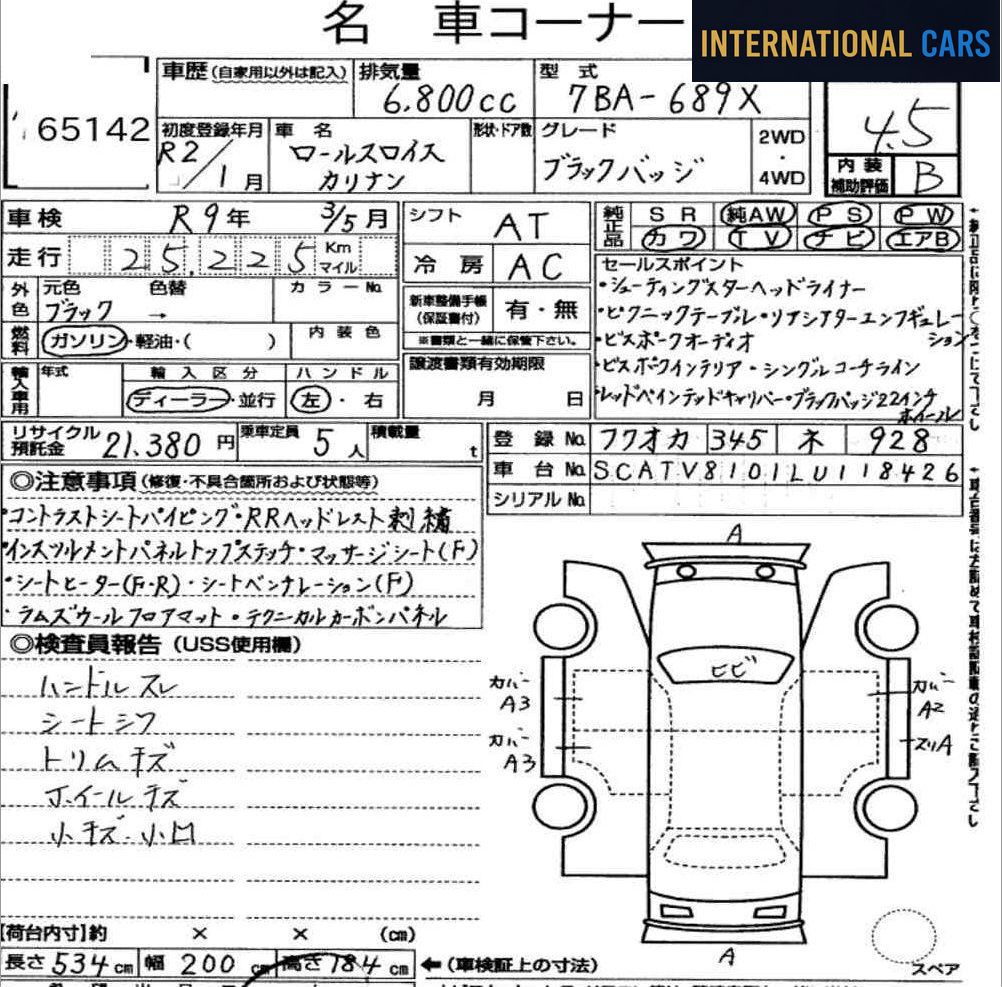 名 車コーナー
INTERNATIONAL CARS
65142
車歴 (自家用以外は記入) 排気量 型式
6,800cc 7BA-689X
4.5
初度登録年月 車名 形状・ドア数 グレード 2WD・4WD
R2/1月 ロールスロイス カリナン ブラックバッジ
内装補助評価 B
車検 R9年 3/5月 シフト AT
純正品 SR 純AW PS PW
カワ TV ナビ エアB
走行 25,225 Km マイル 冷房 AC
外色 元色 色替 カラーNo.
ブラック →
新車整備手帳(保証書付) 有・無
※書類と一緒に保管下さい。
燃料 ガソリン・軽油・( ) 内装色
譲渡書類有効期限
月 日
輸入車用 年式 輸入区分 ハンドル
ディーラー・並行 左・右
セールスポイント
・シューティングスターヘッドライナー
・ピクニックテーブル・リアシアターエンフギュレーション
・ビスポークオーディオ
・ビスポークインテリア・シングルコーチライン
・レッドペインテッドキャリパー・ブラックバッジ22インチホイール
リサイクル預託金 21,380円 乗車定員 5人 積載量 t
登録No. フクオカ 345 ネ 928
車台No. SCATV8101LU118426
シリアルNo.
◎注意事項(修復・不具合箇所および状態等)
・コントラストシートパイピング・RRヘッドレスト刺繍
・インスツルメントパネルトップステッチ・マッサージシート(F)
・シートヒーター(F・R)・シートベンチレーション(F)
・ラムズウールフロアマット・テクニカルカーボンパネル
◎検査員報告(USS使用欄)
ハンドルスレ
シートシワ
トリムキズ
ホイールキズ
小キズ・小凹
A
ヒビ
カバー A3
カバー A3
カバー A2
スリA
A
スペア
【荷台内寸】約 × × (cm)
長さ 534cm 幅 200cm 高さ 184cm ←(車検証上の寸法)